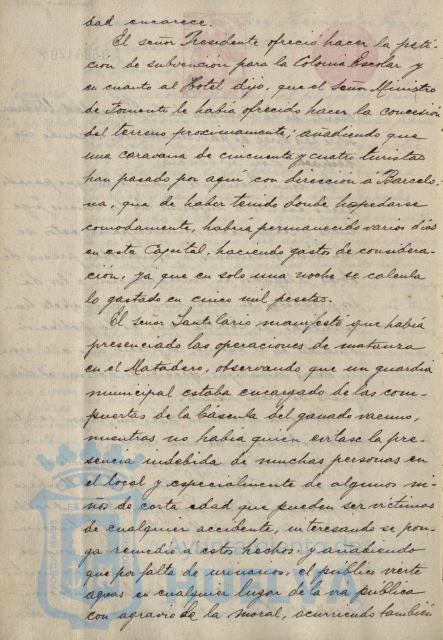 dad encarece.
El señor Presidente ofreció hacer la peti-
ción de subvención para la Colonia Escolar y
en cuanto al Hotel dijo, que el Señor Ministro
de Fomento le había ofrecido hacer la concesión
del terreno proximamente; añadiendo que
una caravana de cincuenta y cuatro turistas
han pasado por aquí con dirección á Barcelo-
na, que de haber tenido donde hospedarse
comodamente, habría permanecido varios días
en esta Capital, haciendo gastos de considera-
ción, ya que en solo una noche se calcula
lo gastado en cinco mil pesetas.
El señor Santilario manifestó que había
presenciado las operaciones de matanza
en el Matadero, observando que un guardia
municipal estaba encargado de las com-
puertas de la báscula del ganado vacuno,
mientras no había quien evitase la pre-
sencia indebida de muchas personas en
el local y especialmente de algunos ni-
ños de corta edad que pueden ser víctimas
de cualquier accidente, interesando se pon-
ga remedio a estos hechos y añadiendo
que por falta de urinarios, el público vierte
aguas en cualquier lugar de la vía pública
con agravio de la moral, ocurriendo también
HUELVA